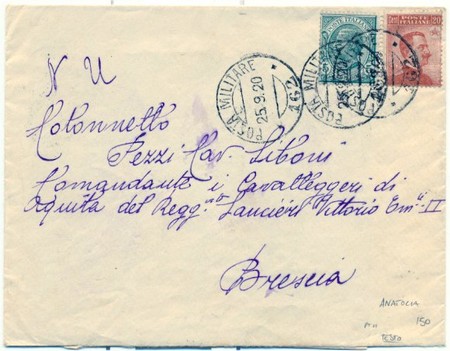 POSTE ITALIANE 5
POSTE ITALIANE 20
POSTA MILITARE 162
25.9.20
POSTA MILITARE 162
25.9.20
N U
Colonnello
Pezzi Cav. Siboni
Comandante i Cavalleggeri di
Aquila del Regg.to Lancieri Vittorio Em. II
Brescia
ANATOLIA
150